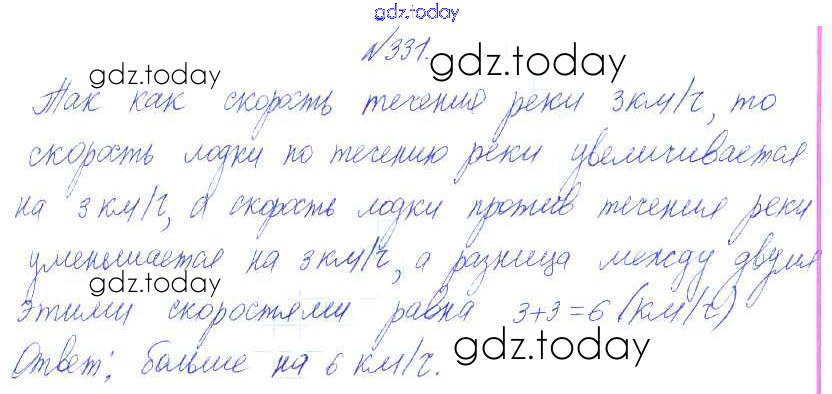 gdz.today
№331.
gdz.today
gdz.today
Так как скорость течения реки 3км/ч, то
скорость лодки по течению реки увеличивается
на 3км/ч, а скорость лодки против течения реки
уменьшается на 3км/ч, а разница между двумя
gdz.today
этими скоростями равна 3+3=6 (км/ч)
Ответ: больше на 6 км/ч.
gdz.today